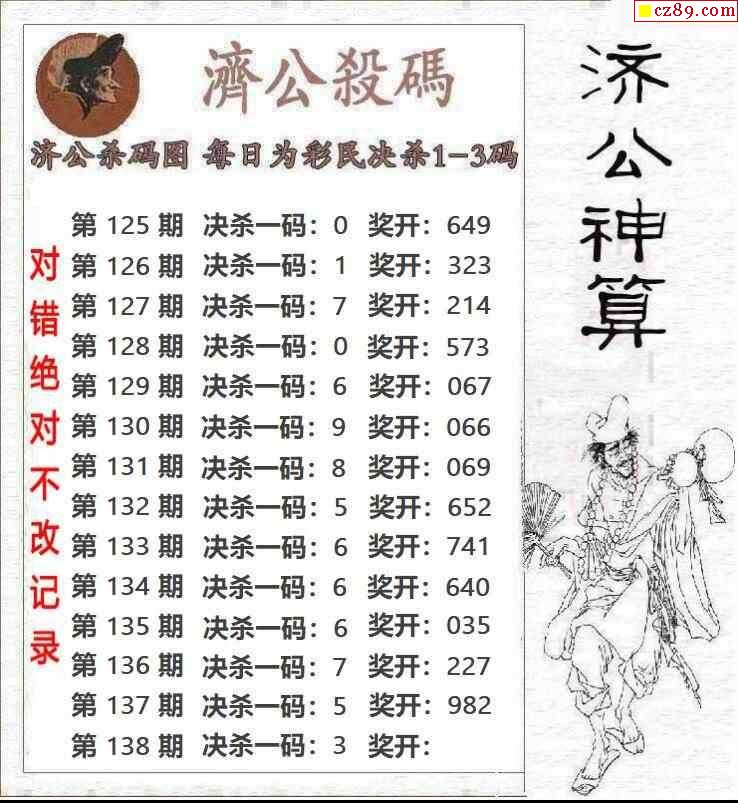 cz89.com
濟公殺碼
济公杀码图 每日为彩民决杀1-3码
第 125 期 决杀一码：0 奖开：649
第 126 期 决杀一码：1 奖开：323
第 127 期 决杀一码：7 奖开：214
第 128 期 决杀一码：0 奖开：573
第 129 期 决杀一码：6 奖开：067
第 130 期 决杀一码：9 奖开：066
第 131 期 决杀一码：8 奖开：069
第 132 期 决杀一码：5 奖开：652
第 133 期 决杀一码：6 奖开：741
第 134 期 决杀一码：6 奖开：640
第 135 期 决杀一码：6 奖开：035
第 136 期 决杀一码：7 奖开：227
第 137 期 决杀一码：5 奖开：982
第 138 期 决杀一码：3 奖开：
对错绝对不改记录
济公神算